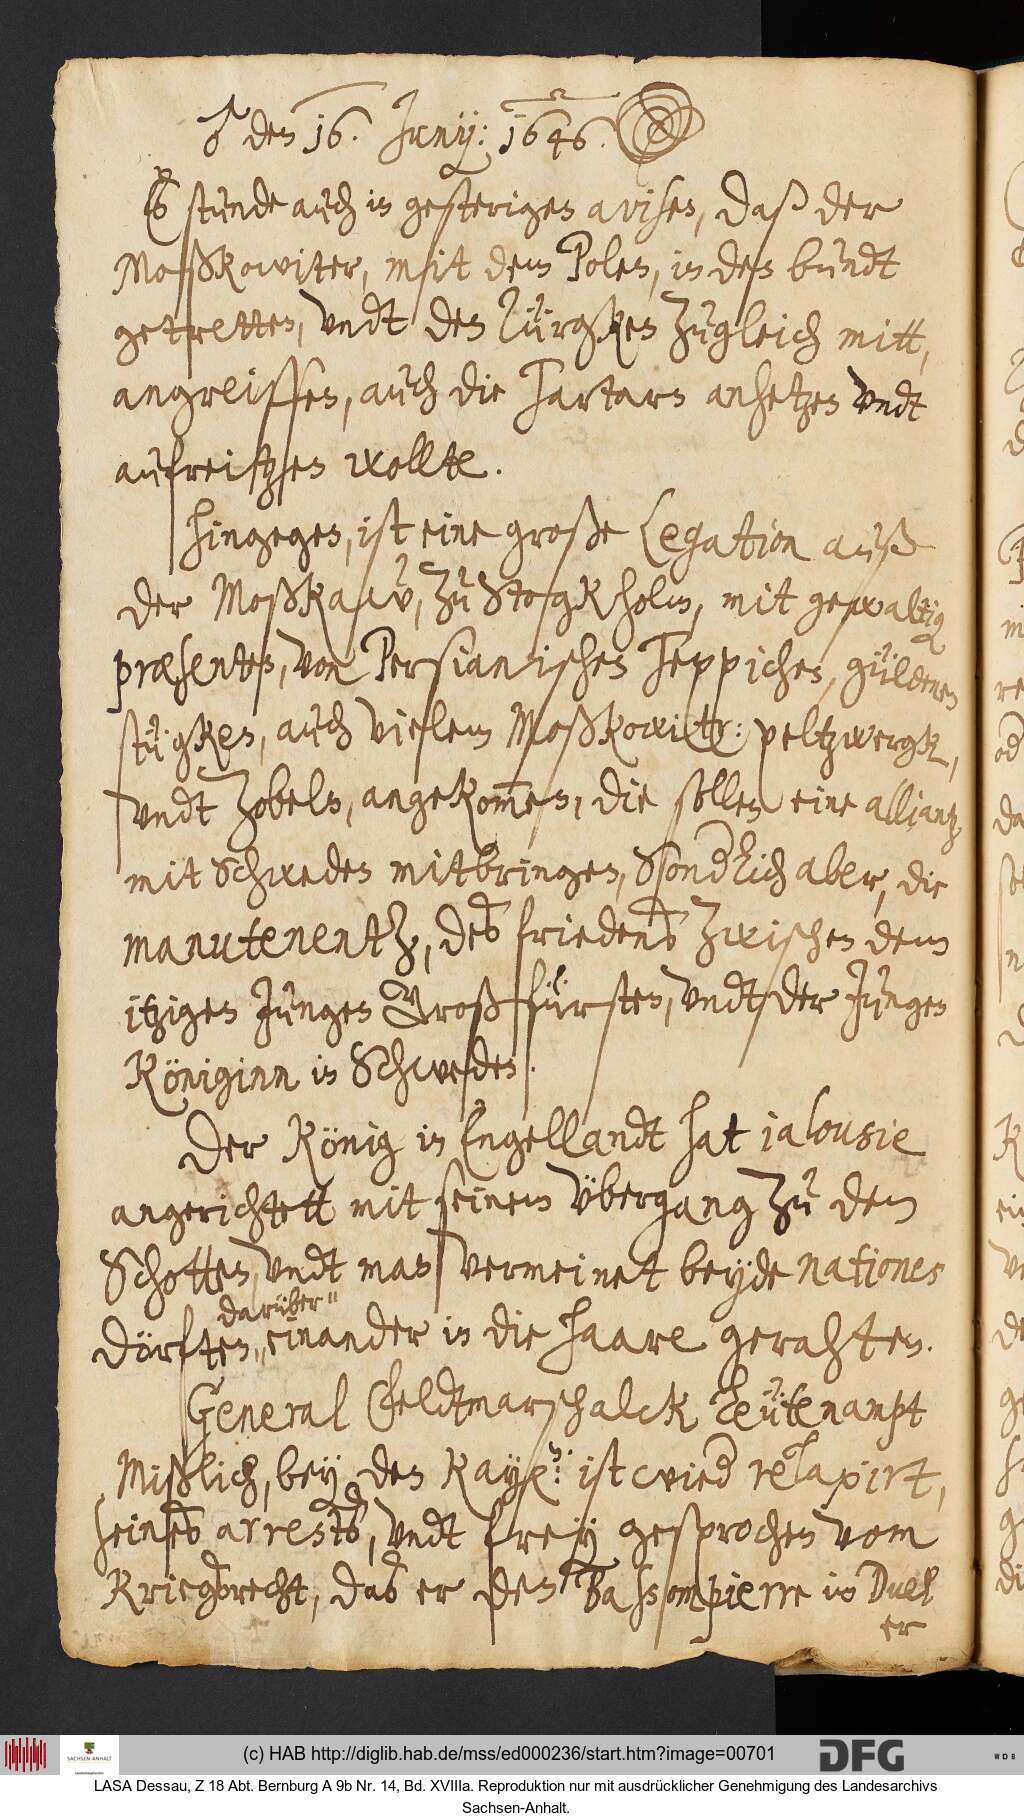 ♂ den 16. Junij: 1646.
Es stunde auch in gesteriges avisen, daß der
Moßkowiter, mit dem Polen, in den bundt
getretten, vndt den Türgken zugleich mitt,
angreiffen, auch die Tartarn anhetzen vndt
aufreitzen wollte.
Hingegen, ist eine große Legation auß
der Moßkauw, zu Stogkholm, mit gewaltig
præsenten, von Persianischen Teppichen, güldenen
stügken, auch vielem Moßkowitr: peltzwergk,
vndt Zobeln, angekom̅en, die sollen eine alliantz,
mit Schweden mitbringen, Sond(er)lich aber, die
manutenentz, deß friedens zwischen dem
itzigen Jungen Großfürsten, vndt der Jungen
Königinn in Schweden.
Der König in Engellandt hat jalousie
angerichtett mit seinem übergang zu den
Schotten, vndt man vermeinet beyde nationes
darüber"
dörften,, einander in die Haare gerahten.
General Feldtmarschalck Leütenampt
Mißlich, bey den Kayß(e)n: ist wied(er) relaxirt,
seines arrests, vndt frey gesprochen vom
Kriegsrecht, daß er den Bassompierre in Duel
er
(c) HAB http://diglib.hab.de/mss/ed000236/start.htm?image=00701
SACHSEN-ANHALT
DFG
WDB
LASA Dessau, Z 18 Abt. Bernburg A 9b Nr. 14, Bd. XVIIIa. Reproduktion nur mit ausdrücklicher Genehmigung des Landesarchivs
Sachsen-Anhalt.